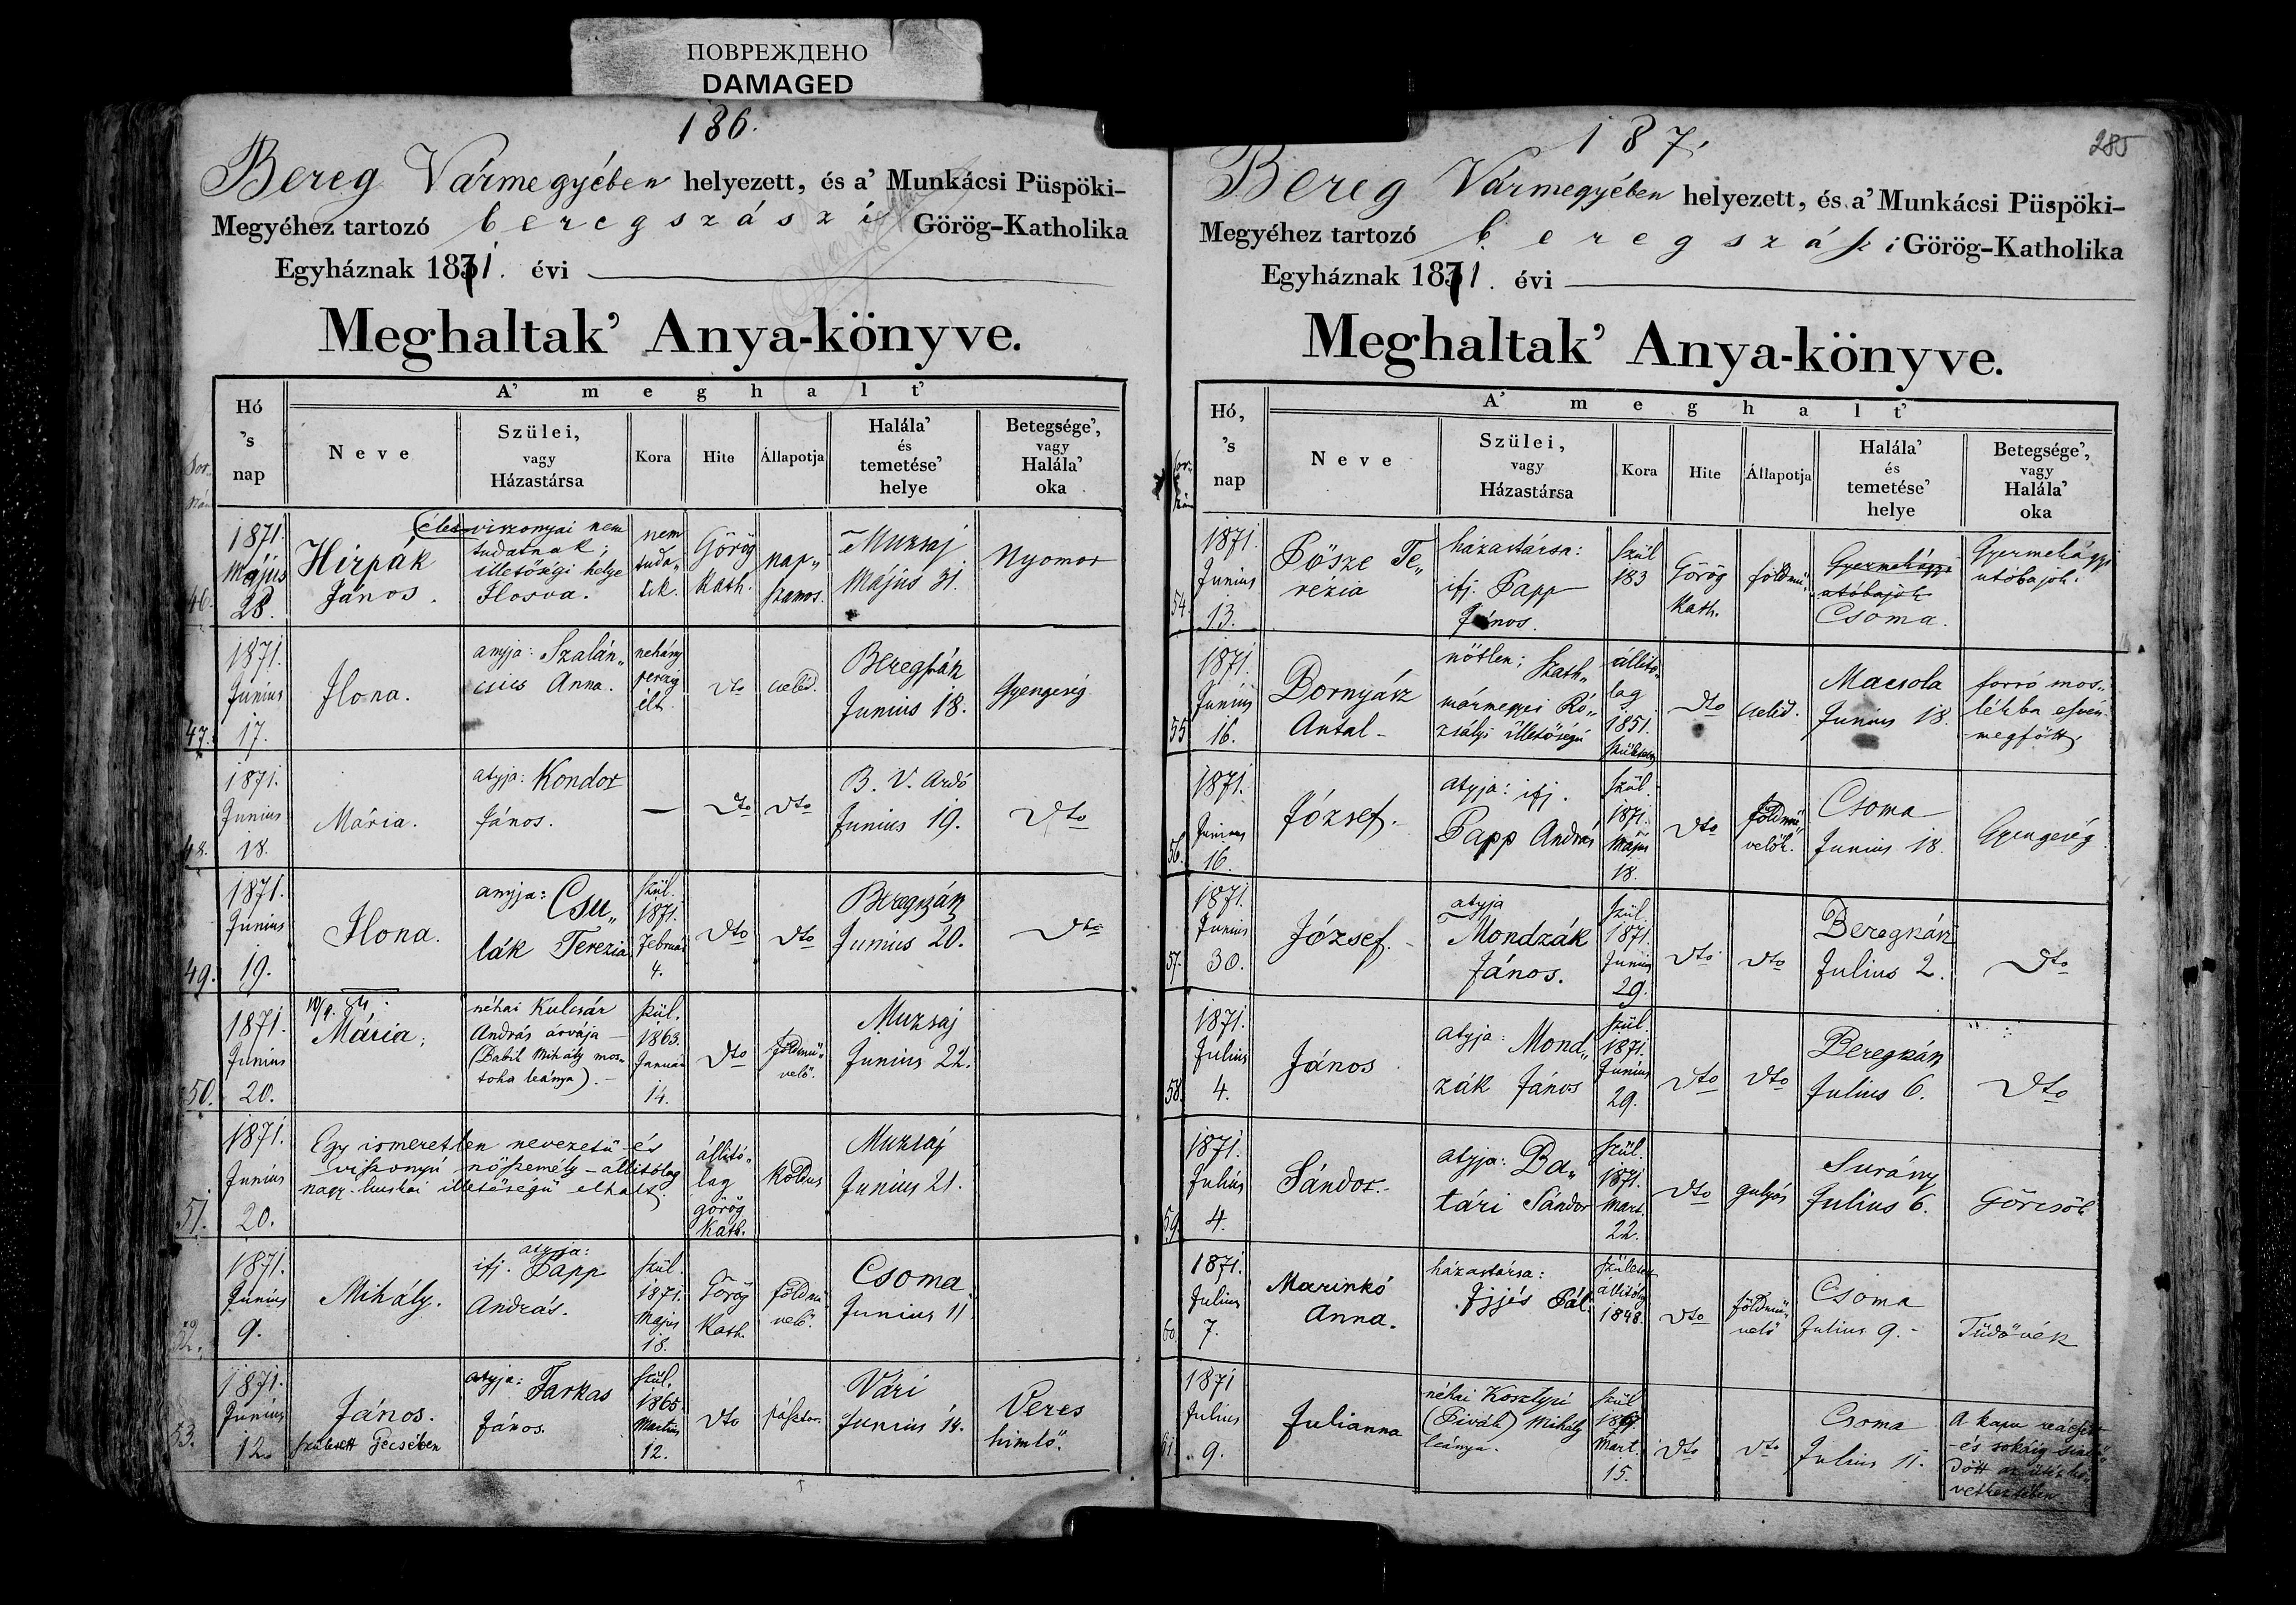 ПОВРЕЖДЕНО
DAMAGED
186.
Bereg Vármegyében helyezett, és a' Munkácsi Püspöki-
Megyéhez tartozó beregszászi Görög-Katholika
Egyháznak 1871. évi
Meghaltak' Anya-könyve.
Hó 's nap
A' meghalt'
Neve
Szülei, vagy Házastársa
Kora
Hite
Állapotja
Halála' és temetése' helye
Betegsége', vagy Halála' oka
46.
1871. Május 28.
Hirpák János.
viszonyai nem
tudatnak;
illetőségi helye
Ilosva.
nem tuda„ tik.
Görög Kath.
nap„ szamos.
Muzsaj
Május 31.
Nyomor
47.
1871. Junius 17.
Ilona.
anyja: Szalán„
csics Anna.
nehány perczig élt.
dto
cseléd.
Beregszász
Junius 18.
Gyengeség
48.
1871. Junius 18.
Mária.
atyja: Kondor
János.
—
dto
dto
B. V. Ardó
Junius 19.
dto
49.
1871. Junius 19.
Ilona.
anyja: Csu„
lák Terezia
szül. 1871. Február 4.
dto
dto
Beregszász
Junius 20.
dto
50.
1871. Junius 20.
Mária;
néhai Kulcsár
András árvája
(Babil Mihály mos„
toha leánya).
szül. 1863. Január 14.
dto
földmű„ velő.
Muzsaj
Junius 22.
51.
1871. Junius 20.
Egy ismeretlen nevezetü és
viszonyú nőszemély – állitólag
illetőségü elhalt.
állitó„ lag görög kath.
koldus
Muzsaj
Junius 21.
52.
1871. Junius 9.
Mihály.
atyja:
ifj. Papp
András.
szül. 1871. Május 18.
Görög Kath.
földmű velő.
Csoma
Junius 11
53.
1871. Junius 12.
János.
született Pecsében
atyja: Farkas
János.
szül. 1865 Martius 12.
dto
pásztor.
Vári
Junius 14.
Veres himlő.
187.
285
Bereg Vármegyében helyezett, és a' Munkácsi Püspöki-
Megyéhez tartozó beregszászi Görög-Katholika
Egyháznak 1871. évi
Meghaltak' Anya-könyve.
Hó, 's nap
A' meghalt'
Neve
Szülei, vagy Házastársa
Kora
Hite
Állapotja
Halála' és temetése' helye
Betegsége', vagy Halála' oka
54
1871. Junius 13.
Pősze Te„
rézia
házastársa:
ifj. Papp
János.
szül 183
Görög Kath.
földmű„
Gyermekágyi
utóbajok
Csoma.
Gyermekágyi
utóbajok.
55
1871. Junius 16.
Dornyász
Antal –
nőtlen; Szath„
mármegyei Ró„
zsályi illetőségű
állitó„ lag 1851. született
dto
cseléd.
Macsola
Junius 18.
forró mos„
lékba esvén
megfőtt.
56.
1871. Junius 16.
József.
atyja: ifj.
Papp András
szül. 1871. Május 18.
dto
földmű„ velők.
Csoma
Junius 18.
Gyengeség
57.
1871. Junius 30.
József.
atyja
Mondzák
János.
szül. 1871. Junius 29.
dto
dto
Beregszász
Julius 2.
dto
58.
1871. Julius 4.
János
atyja: Mond„
zák János
szül. 1871. Junius 29.
dto
dto
Beregszász
Julius 6.
dto
59
1871. Julius 4.
Sándor.
atyja: Ba„
tári Sándor
szül. 1871. Mart. 22.
dto
gulyás
Surány
Julius 6.
Görcsök
60.
1871. Julius 7.
Marinkó
Anna.
házastársa:
Ijjés Pál.
született állitólag 1848.
dto
földmű„ velő
Csoma
Julius 9.
Tüdővész
61.
1871 Julius 9.
Julianna
néhai Kosztyi
(Pivák) Mihály
leánya.
szül Mart. 15.
dto
dto
Csoma
Julius 11.
A kapu reáesett
és sokáig